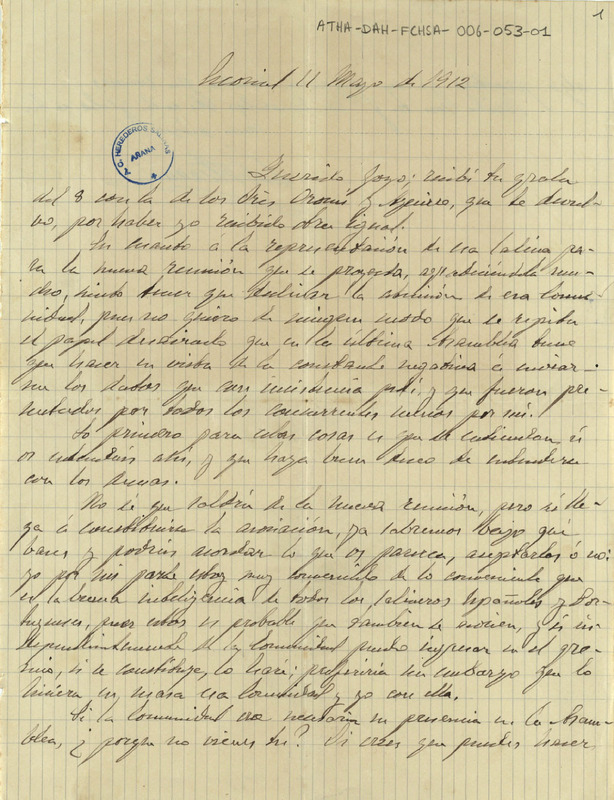 ATHA-DAH-FCHSA-006-053-01
1
Escorial 11 Mayo de 1912
A. C. HEREDEROS SALINAS
AÑANA
Querido Goyo; recibí tu grata
del 8 con la de los Srs Oromí y Aguirre, que te devuel-
vo, por haber yo recibido otra igual.
En cuanto a la representación de esa Salina pa-
ra la nueva reunión que se proyecta, agradeciéndola mu-
cho, siento tener que declinar la comisión de esa Comu-
nidad, pues no quiero de ningún modo que se repita
el papel desairado que en la última Asamblea tuve
que hacer en vista de la constante negativa á enviar-
me los datos que con insistencia pedí, y que fueron pre-
sentados por todos los concurrentes menos por mí.
Lo primero para estas cosas es que se entiendan ú
os entendais ahí, y que haya buen deseo de entenderse
con los demas.
No sé que saldrá de la nueva reunión, pero si lle-
ga á constituirse la asociación, ya sabremos bajo qué
bases y podréis acordar lo que os parezca, aceptarlas ó no;
yo por mi parte estoy muy convencido de lo conveniente que
es la buena inteligencia de todos los salineros Españoles y Por-
tugueses, pues estos es probable que tambien se asocien, y si in-
dependientemente de la Comunidad puedo ingresar en el gre-
mio, si se constituye, lo haré; preferiría sin embargo que lo
hiciera en masa esa Comunidad y yo con ella.
Si la Comunidad cree necesaria su presencia en la Asam-
blea, ¿ porque no vienes tú? Si crees que puedes hacer